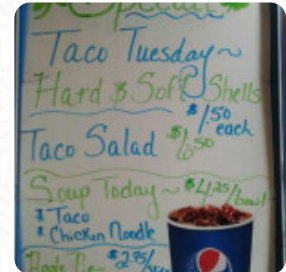 Special
Taco Tuesday~
Hard & Soft Shells
$1.50 each
Taco Salad $6.50
Soup Today ~ $4.25/bowl
Taco
Chicken Noodle
$2.75/